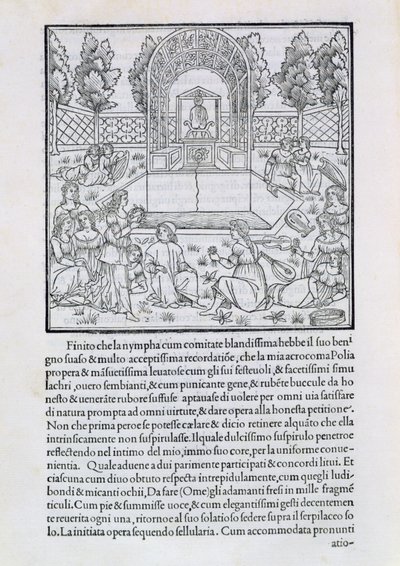 Finito che la nympha cum comitate blandissima hebbe il suo beni
gno suaso & multo acceptissima recordatiõe, che la mia acrocoma Polia
propera & mãsuetissima leuatose cum gli sui festeuoli, & facetissimi simu
lachri, ouero sembianti, & cum punicante gene, & rubéte buccule da ho
nesto & uenerãte rubore suffuse aptauase di uolere per omni uia satisfare
di natura prompta ad omni uirtute, & dare opera alla honesta petitione.
Non che prima peroe se potesse cælare & dicio retinere alquãto che ella
intrinsicamente non suspirulasse. Il quale dulcissimo suspirulo penetroe
reflectendo nel intimo del mio, immo suo core, per la uniforme conue-
nientia. Quale aduene a dui parimente participati & concordi litui. Et
ciascuna cum diuo obtuto respecta intrepidulamente, cum quegli ludi-
bondi & micanti ochii, Da fare (Ome) gli adamanti fresi in mille fragmé
ticuli. Cum pie & summisse uoce, & cum elegantissimi gesti decentemen
te reuerita ogni una, ritornoe al suo solatioso sedere supra il serpilaceo so
lo. La initiata opera sequendo sellularia. Cum accommodata pronunti
atio-